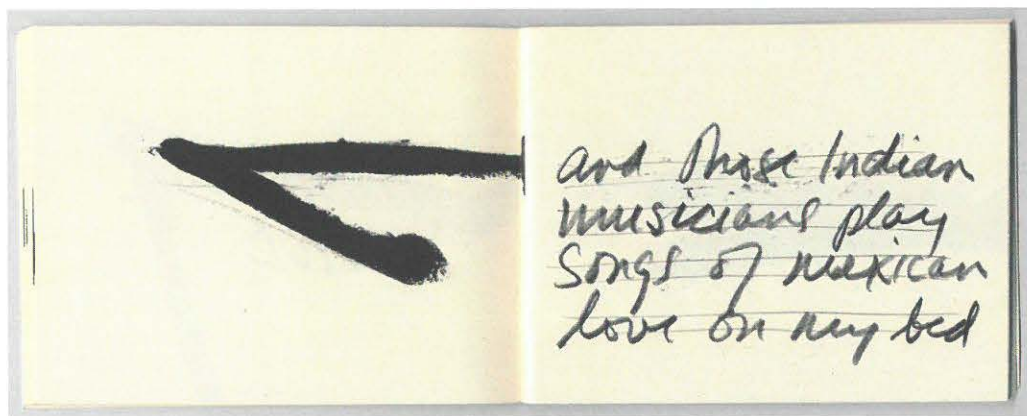 and those Indian
musicians play
songs of mexican
love on my bed